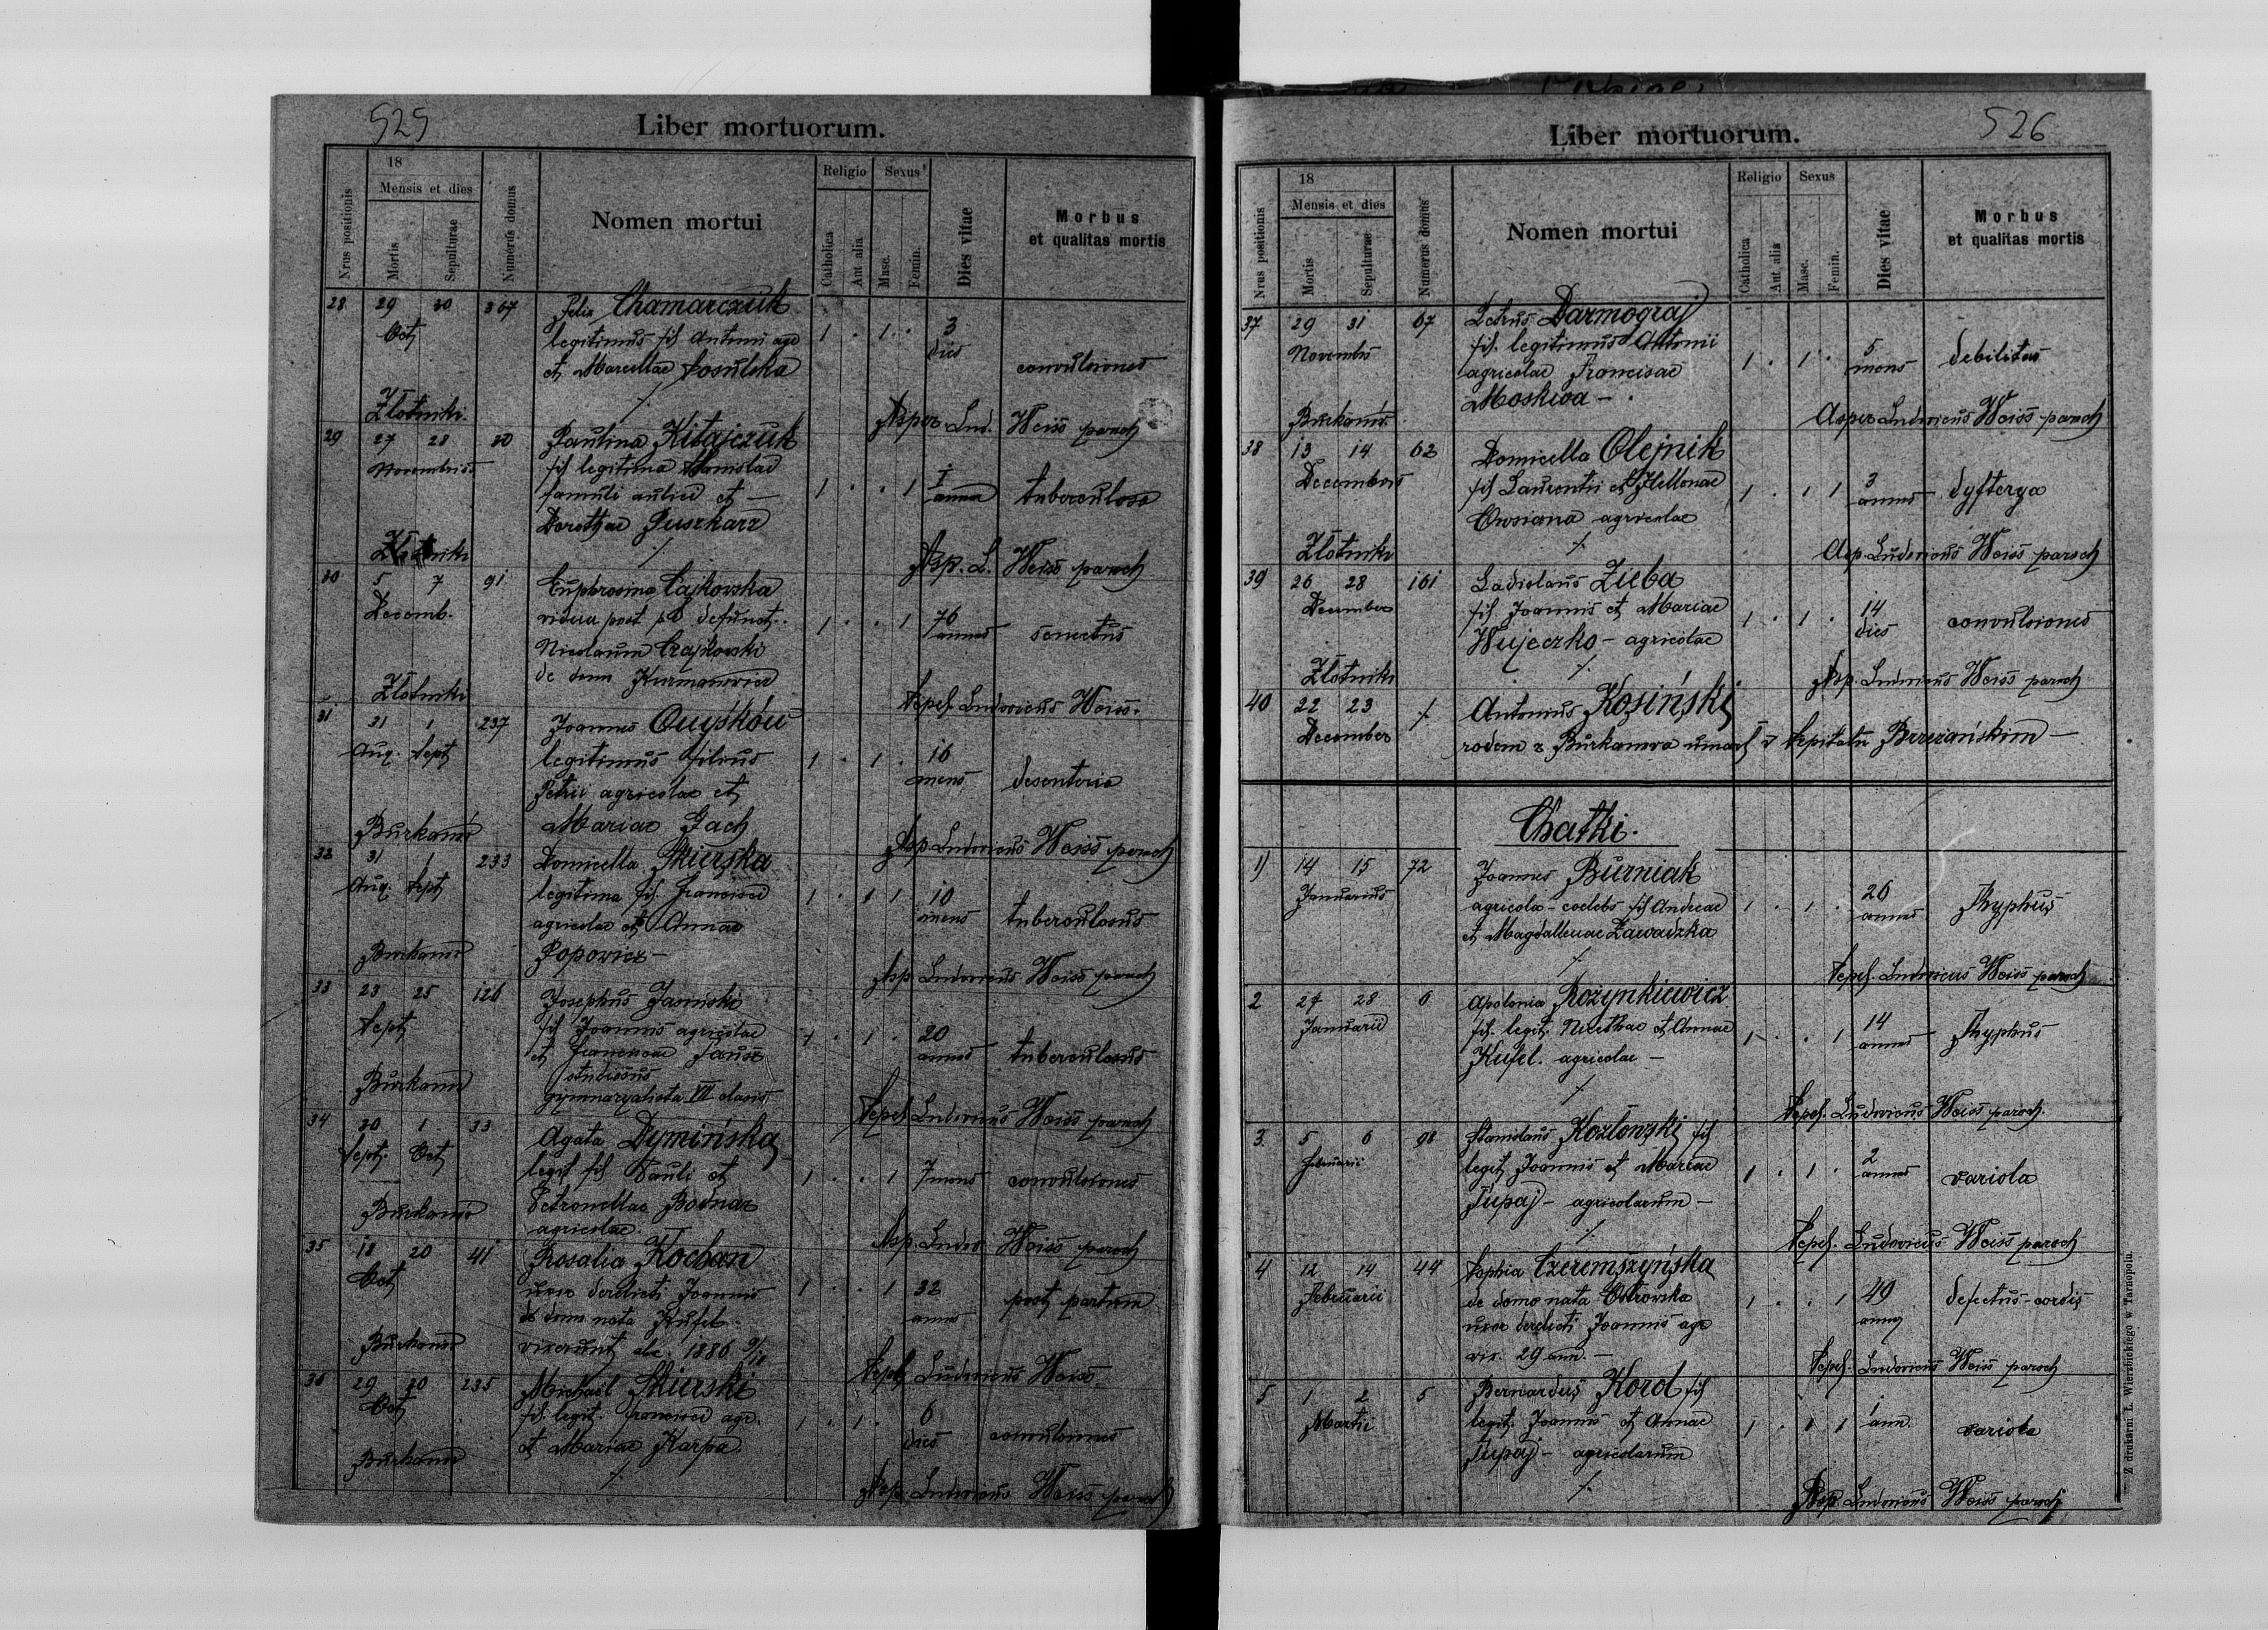 525
Liber mortuorum.
Nrus positionis
18
Mensis et dies
Mortis
Sepulturae
Numerus domus
Nomen mortui
Religio
Catholica
Aut alia
Sexus
Masc.
Femin.
Dies vitae
Morbus
et qualitas mortis
28 29 30 367 Felix Chamarczuk
Oct legitimus fil Antoni agr 1 . 1 . 3
et Marcellae Kosulska dies convulsiones
Złotniki. Asper Lud. Weiss paroch
29 27 28 30 Paulina Kitajczuk
Novembris fil legitima Stanislai
famuli aulici et — 1 . . 1 anna tuberculosa
Dorothae Puszkarz
Złotniki Asp. L. Weiss paroch
30 5 7 91 Euphrosina Czajkowska
Decemb. vidua post defunct. 1 . . 1 76
Nicolaum Czajkowski annos senectus
de domo Kurmanowicz
Złotniki Sepel. Ludovicus Weiss.
31 31 1 237 Joannes
Aug. Sept legitimus filius 1 . 1 . 16
Petri agricolae et mens desenteria
Burkanów Mariae Jach Asp. Ludovicus Weiss paroch
32 31 1 233 Domicella Skierska
Aug. Sept legitima fil Francisci 1 . 1 1 10
agricolae et Annae mens tuberculosus
Burkanów Popowicz — Asp Ludovicus Weiss paroch
33 23 25 126 Josephus Jasinski
Sept fil Joannis agricolae 1 . 1 . 20
et Franciscae annos tuberculosus
studiosus
Burkanów gymnazyalista VII clasis Sepel Ludovicus Weiss paroch
34 30 1 33 Agata Dymińska
Sept. Oct legit fil Pauli et 1 . . 1 7 mens convulsiones
Burkanów Petronellae Bodnar
agricolae. Asp. Ludov Weiss paroch
35 18 20 41 Rosalia Kochan
Oct uxor derelicti Joannis 1 . . 1 32 post partum
de domo nata Kufel annos
Burkanów vixerunt ab. 1886 Sepel Ludovicus Weiss
36 29 30 235 Michaël Skierski
Oct fil. legit. Francisci agr. 1 . 1 . 6
Burkanów et Mariae Karpa. dies convulsiones
Asp. Ludovicus Weiss paroch
526
Liber mortuorum.
Nrus positionis
18
Mensis et dies
Mortis
Sepulturae
Numerus domus
Nomen mortui
Religio
Catholica
Aut alia
Sexus
Masc.
Femin.
Dies vitae
Morbus
et qualitas mortis
37 29 31 67 Petrus Darmograj
Novembris fil. legitimus Antonii
agricolae Franciscae 1 . 1 . 5 mens debilitas
Moskwa — .
Burkanów. Asper Ludovicus Weiss paroch
38 13 14 62 Domicella Olejnik
Decembris fil Laurentii et Hellenae 1 . 1 1 3 annos dyfterya
Owsiana agricolae
Złotniki Asp. Ludovicus Weiss paroch
39 26 28 161 Ladislaus Zieba
December fil. Joannis et Mariae 1 . 1 . 14 dies convulsiones
Wujeczko — agricolae
Złotniki Asp. Ludovicus Weiss paroch
40 22 23 ./. Antonius Kosiński
December rodem z Burkanowa umarł w szpitalu Brzeżańskim —
Chatki.
1) 14 15 72 Joannes Burniak
Januarius agricola - coelebs fil Andreae 1 . 1 . 26 annos Thyphus
et Magdallenae Zawadzka
Sepel. Ludovicus Weiss paroch
2 27 28 6 Apolonia Rożynkiewicz
Januarii fil. legit. Nicethae et Annae 1 . . 1 14 annos Thyphus
Kufel. agricolae —
Sepel. Ludovicus Weiss paroch.
3. 5 6 98 Stanislaus Kozłowski fil
Februarii legit Joannis et Mariae 1 . 1 . 2 annos variola
Tupaj — agricolarum —
Sepel. Ludovicus Weiss paroch
4 12 14 44 Sophia Czeremszyńska
Februarii de domo nata Ostrowska 1 . . 1 49 annos defectus-cordis
uxor derelicti Joannis agr
vix. 29 ann. — Sepel. Ludovicus Weiss paroch
5 1 2 5 Bernardus Kord fil
Martii legit. Joannis et Annae 1 . 1 1 1 ann. variola
Tupaj — agricolarum
Asp. Ludovicus Weiss paroch
Z drukarni L. Wierzbickiego w Tarnopolu.